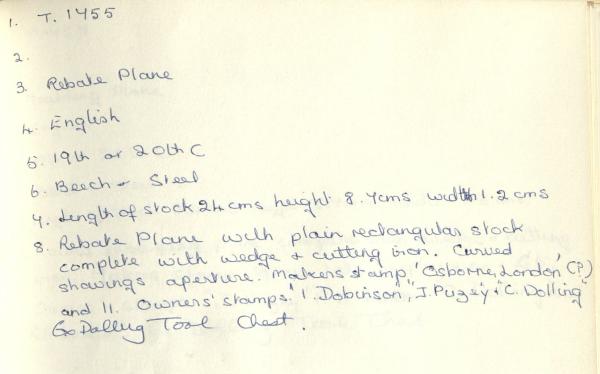 1. T. 1455
2.
3. Rebate Plane
4. English
5. 19th or 20th C
6. Beech + Steel
7. Length of stock 24 cms height 8.7cms width 1.2 cms
8. Rebate Plane with plain rectangular stock
complete with wedge + cutting iron. Curved
shavings aperture. Makers stamp 'Osborne, London' (?)
and 11. Owners' stamps. "I. Dobinson", "J. Puzey" + "C. Dolling"
Tool Chest.